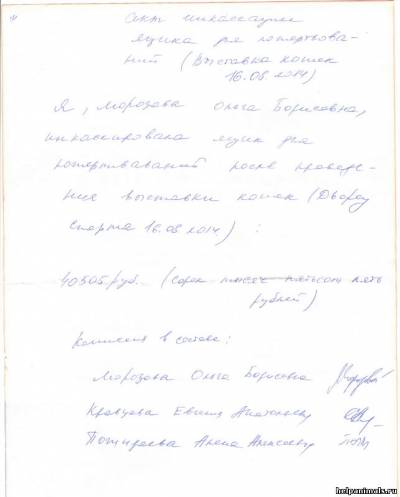 Акт инкассации
ящика для пожертвова-
ний (Выставка кошек
16.08.2014)
Я, Морозова Ольга Борисовна,
инкассировала ящик для
пожертвований после проведе-
ния выставки кошек (Дворец
спорта 16.08.2014):
40505 руб. (сорок тысяч пятьсот пять
рублей)
Комиссия в составе:
Морозова Ольга Борисовна
Кравцова Евгения Анатольевна
Алена Алексеевна
helpanimals.ru